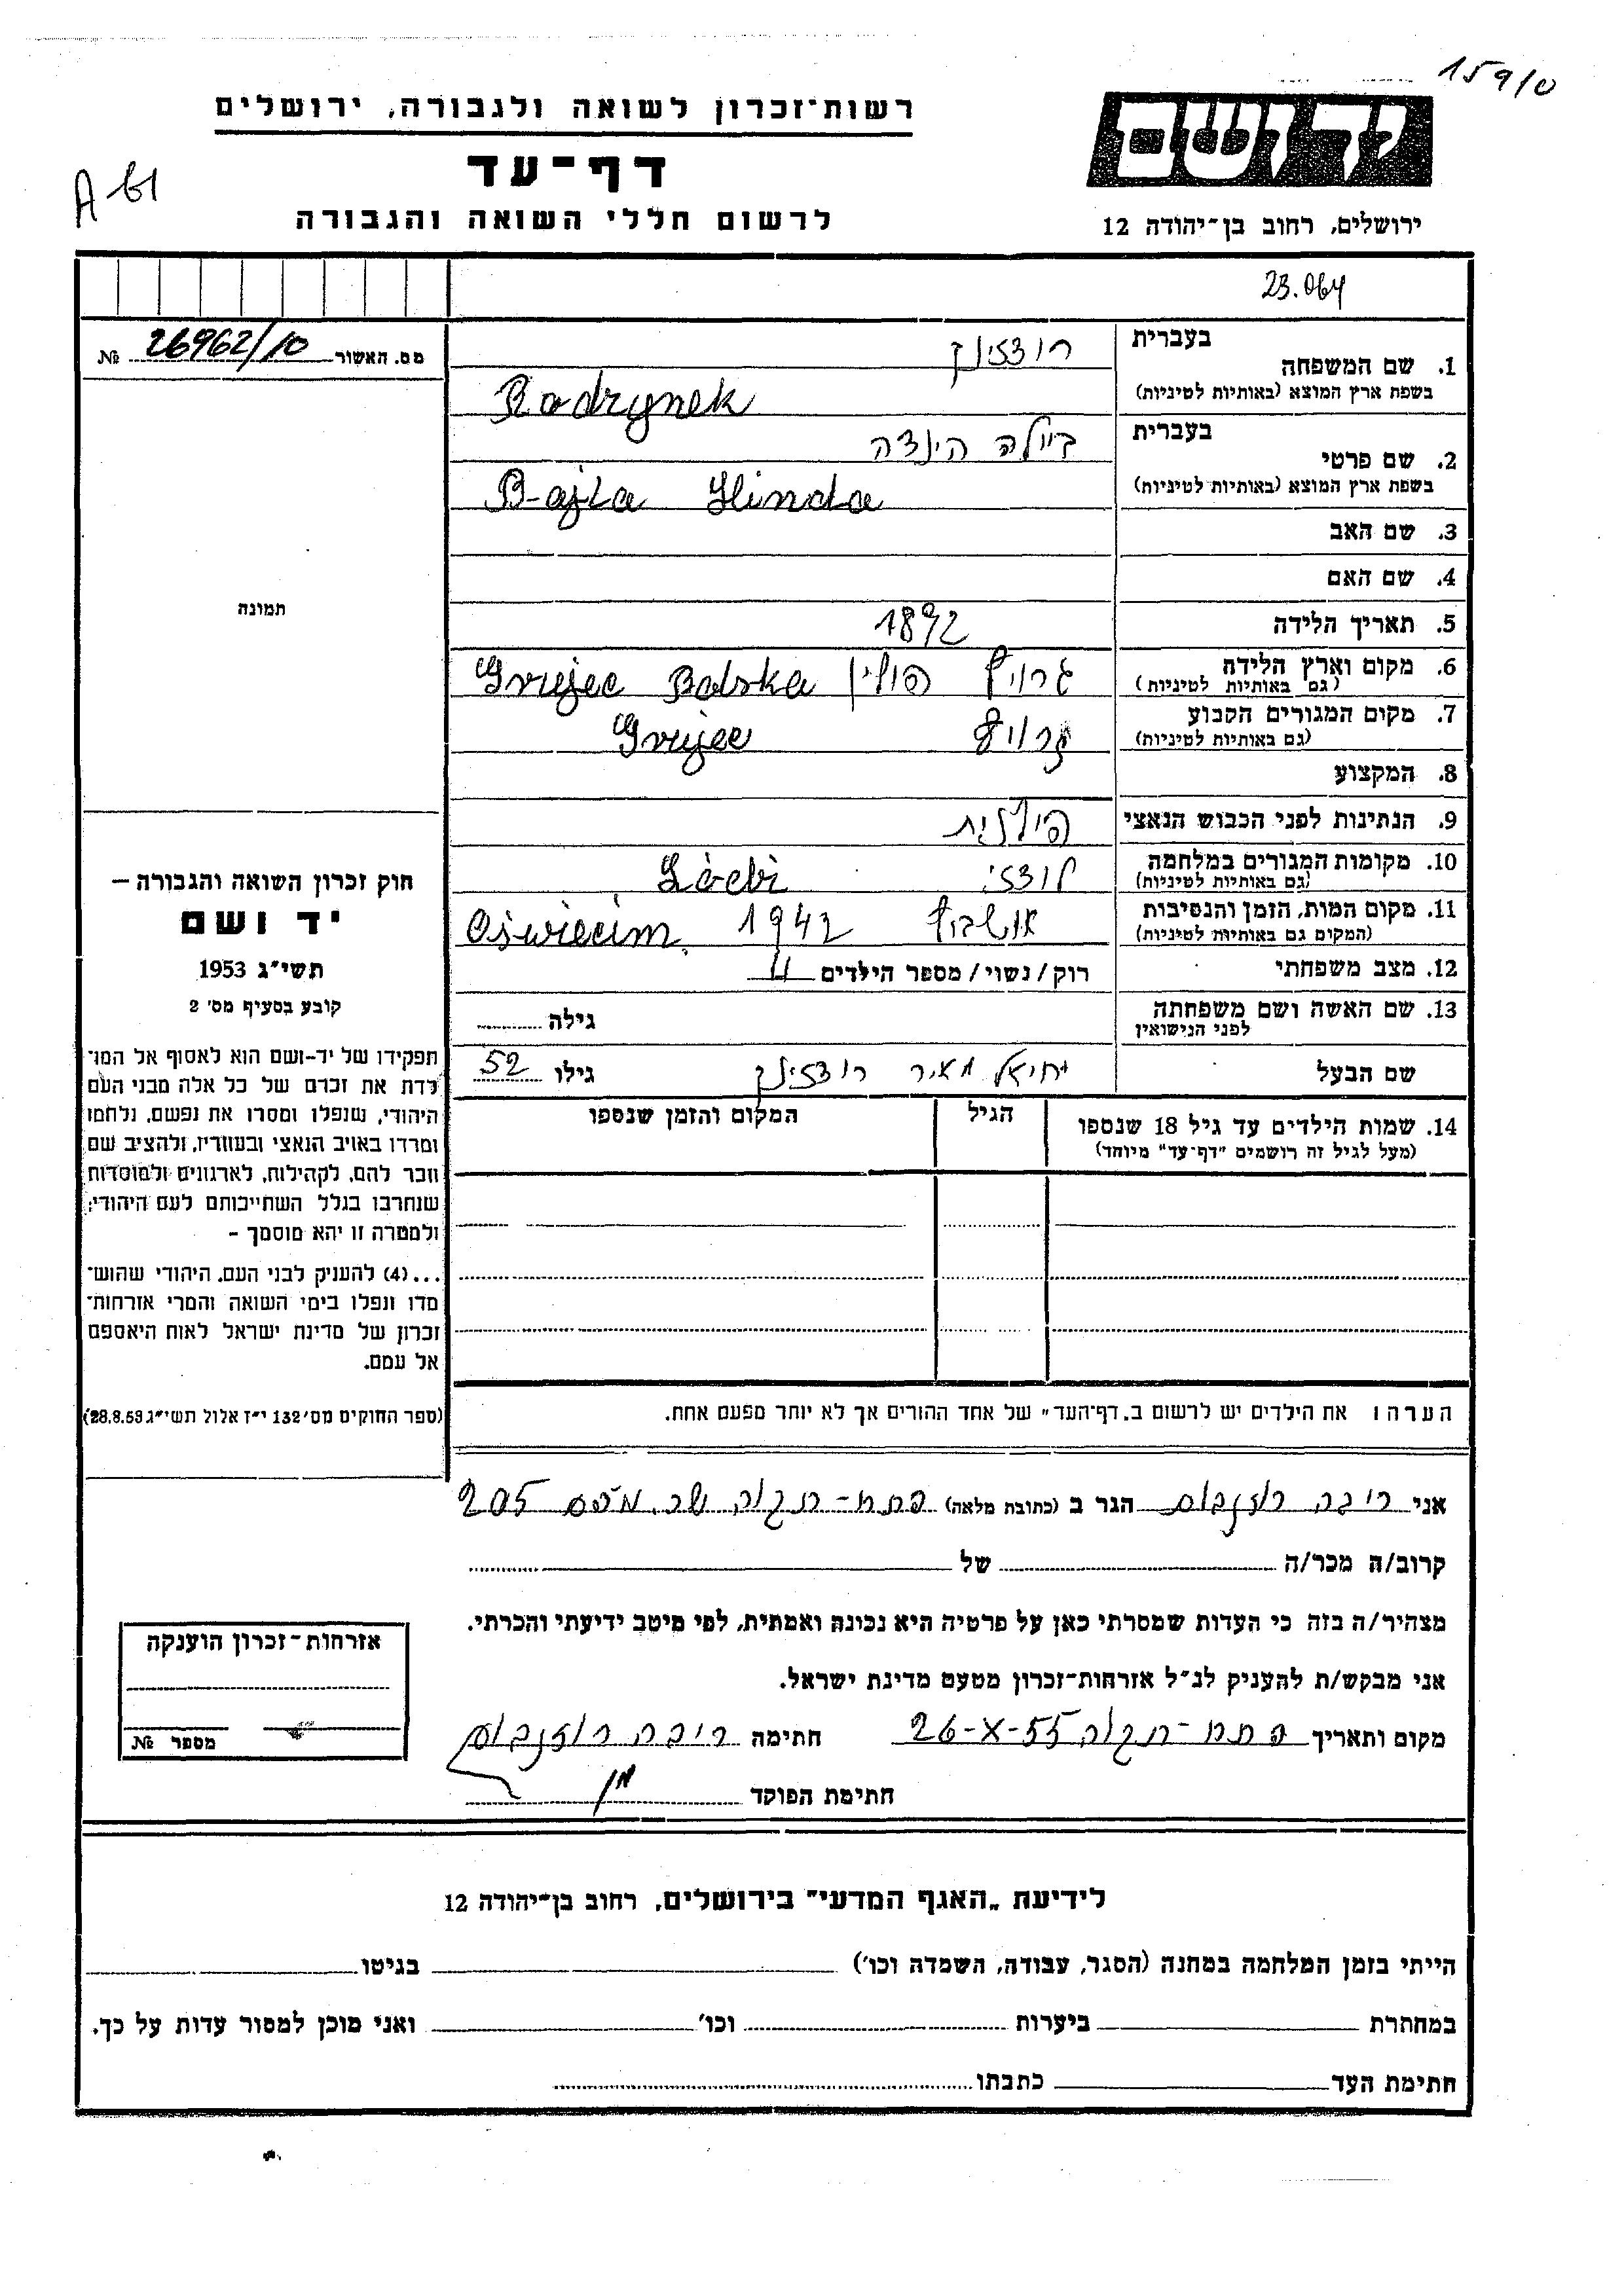 159/0
יד ושם
רשות־זכרון לשואה ולגבורה, ירושלים
דף־עד
לרשום חללי השואה והגבורה
ירושלים, רחוב בן־יהודה 12
A 61
23.064
מס. האשור 26962/10 №
תמונה
1. שם המשפחה בעברית רודזינק
בשפת ארץ המוצא (באותיות לטיניות) Rodzynek
2. שם פרטי בעברית ביילה הינדה
בשפת ארץ המוצא (באותיות לטיניות) Bajla Hinda
3. שם האב
4. שם האם
5. תאריך הלידה 1892
6. מקום וארץ הלידה גרויץ פולין Grujec Polska
(גם באותיות לטיניות)
7. מקום המגורים הקבוע גרויץ Grujec
(גם באותיות לטיניות)
8. המקצוע
9. הנתינות לפני הכבוש הנאצי פולנית
10. מקומות המגורים במלחמה לודז'
(גם באותיות לטיניות)
11. מקום המות, הזמן והנסיבות 1942 Oświecim
(המקום גם באותיות לטיניות)
12. מצב משפחתי רוק/נשוי/מספר הילדים 4
13. שם האשה ושם משפחתה גילה
לפני הנישואין
שם הבעל יחיאל מאיר רודזינק גילו 52
14. שמות הילדים עד גיל 18 שנספו הגיל המקום והזמן שנספו
(מעל לגיל זה רושמים "דף־עד" מיוחד)
חוק זכרון השואה והגבורה —
יד ושם
תשי"ג 1953
קובע בסעיף מס' 2
תפקידו של יד-ושם הוא לאסוף אל המו־
לדת את זכרם של כל אלה מבני העם
היהודי, שנפלו ומסרו את נפשם, נלחמו
ומרדו באויב הנאצי ובעוזריו, ולהציב שם
וזכר להם, לקהילות, לארגונים ולמוסדות
שנחרבו בגלל השתייכותם לעם היהודי;
ולמטרה זו יהא מוסמך –
...(4) להעניק לבני העם, היהודי שהוש־
מדו ונפלו בימי השואה והמרי אזרחות־
זכרון של מדינת ישראל לאות היאספם
אל עמם.
(ספר החוקים מס' 132 י"ז אלול תשי"ג 28.8.53)
הערה: את הילדים יש לרשום ב"דף־העד" של אחד ההורים אך לא יותר מפעם אחת.
אני ריבה רוזנבוים הגר ב (כתובת מלאה) פתח-תקוה 205
קרוב/ה מכר/ה של
מצהיר/ה בזה כי העדות שמסרתי כאן על פרטיה היא נכונה ואמתית, לפי מיטב ידיעתי והכרתי.
אני מבקש/ת להעניק לנ"ל אזרחות־זכרון מטעם מדינת ישראל.
מקום ותאריך פתח-תקוה 26-X-55 חתימה ריבה רוזנבוים
חתימת הפוקד
אזרחות־זכרון הוענקה
מספר №
לידיעת "האגף המדעי" בירושלים, רחוב בן־יהודה 12
הייתי בזמן המלחמה במחנה (הסגר, עבודה, השמדה וכו') בגיטו
במחתרת ביערות וכו' ואני מוכן למסור עדות על כך.
חתימת העד כתבתו